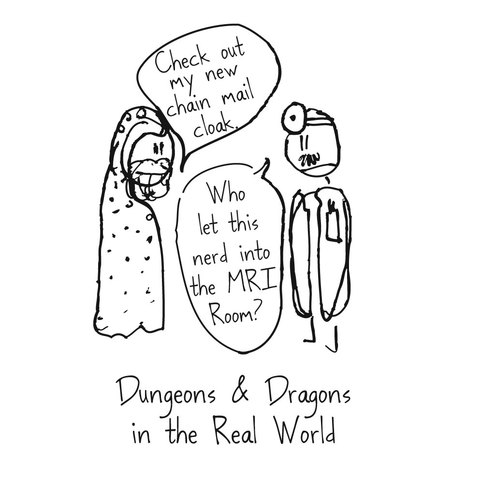 Check out
my new
chain mail
cloak.
Who
let this
nerd into
the MRI
Room?
Dungeons & Dragons
in the Real World